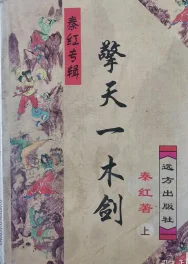 秦红专辑
擎天一木剑
秦红著
上
远方出版社